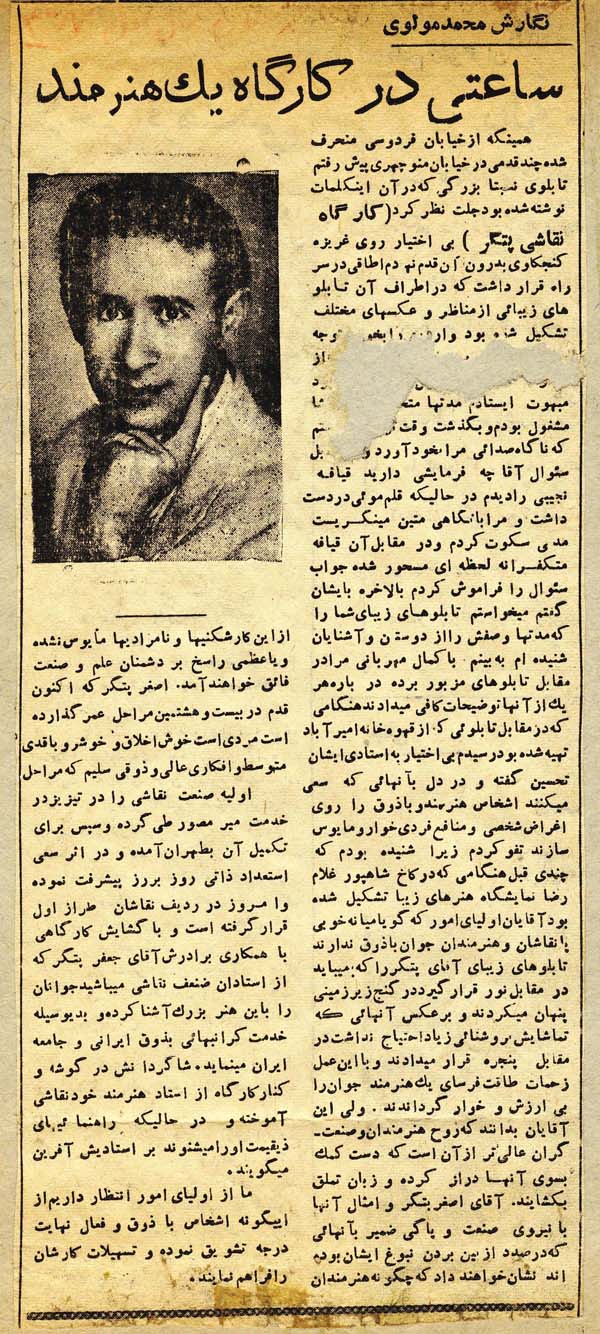 نگارش محمد مولوی
ساعتی در کارگاه یک هنرمند
همینکه از خیابان فردوسی منحرف
شده چند قدمی در خیابان منوچهری پیش رفتم
تابلوی نسبتا بزرگی که در آن اینکلمات
نوشته شده بود جلت نظر کرد (کارگاه
نقاشی پتگر) بی اختیار روی غریزه
کنجکاوی بدرون آن قدم نهادم اطاقی در سر
راه قرار داشت که در اطراف آن تابلو
های زیبائی از مناظر و عکسهای مختلف
تشکیل شده بود وارد
از
مبهوت ایستادم مدتها
مشغول بودم و بگذشت وقت
که ناگاه صدائی مرا بخود آورد و
سئوال آقا چه فرمایشی دارید قیافه
نجیبی را دیدم در حالیکه قلم موئی در دست
داشت و مرا با نگاهی متین مینگریست
مدتی سکوت کردم و در مقابل آن قیافه
متکفرانه لحظه ای مسحور شده جواب
سئوال را فراموش کردم بالاخره بایشان
گفتم میخواستم تابلوهای زیبای شما را
که مدتها وصفش را از دوستان و آشنایان
شنیده ام به بینم با کمال مهربانی مرا در
مقابل تابلوهای مزبور برده در باره هر
یک از آنها توضیحات کافی میدادند هنگامی
که در مقابل تابلوئی که از قهوه خانه امیرآباد
تهیه شده بود رسیدم بی اختیار به استادی ایشان
تحسین گفته و در دل بآنهائی که سعی
میکنند اشخاص هنرمند و باذوق را روی
اغراض شخصی و منافع فردی خوار و مایوس
سازند تفو کردم زیرا شنیده بودم که
چندی قبل هنگامی که در کاخ شاهپور غلام
رضا نمایشگاه هنرهای زیبا تشکیل شده
بود آقایان اولیای امور که گویا میانه خوبی
با نقاشان و هنرمندان جوان باذوق ندارند
تابلوهای زیبای آقای پتگر را که میباید
در مقابل نور قرار گیرد در گنج زیر زمینی
پنهان میکردند و برعکس آنهائی که
تماشایش بروشنائی زیاد احتیاج نداشت در
مقابل پنجره قرار میدادند و با این عمل
زحمات طاقت فرسای یک هنرمند جوان را
بی ارزش و خوار گرداندند . ولی این
آقایان بدانند که روح هنرمندان و صنعت‌ـ
گران عالی تر از آن است که دست کمک
بسوی آنها دراز کرده و زبان تملق
بگشایند. آقای اصغر پتگر و امثال آنها
با نیروی صنعت و پاکی ضمیر بآنهائی
که درصدد از بین بردن نبوغ ایشان بوده
اند نشان خواهند داد که چگونه هنرمندان
از این کارشکنیها و نامرادیها مایوس نشده
و با عظمی راسخ بر دشمنان علم و صنعت
فائق خواهند آمد. اصغر پتگر که اکنون
قدم در بیست و هشتمین مراحل عمر گذارده
است مردی است خوش اخلاق و خوشرو با قدی
متوسط و افکاری عالی و ذوقی سلیم که مراحل
اولیه صنعت نقاشی را در تبریز در
خدمت میر مصور طی کرده و سپس برای
تکمیل آن بطهران آمده و در اثر سعی
استعداد ذاتی روز بروز پیشرفت نموده
و امروز در ردیف نقاشان طراز اول
قرار گرفته است و با گشایش کارگاهی
با همکاری برادرش آقای جعفر پتگر که
از استادان صنعف نقاشی میباشید جوانان
را باین هنر بزرک آشنا کرده و بدیوسیله
خدمت گرانبهائی بذوق ایرانی و جامعه
ایران مینماید. شاگردانش در گوشه و
کنار کارگاه از استاد هنرمند خود نقاشی
آموخته و در حالیکه راهنمائیهای
ذیقیمت اورا میشنوند بر استادیش آفرین
میگویند.
ما از اولیای امور انتظار داریم از
اینگونه اشخاص با ذوق و فعال نهایت
درجه تشویق نموده و تسهیلات کارشان
را فراهم نمایند.